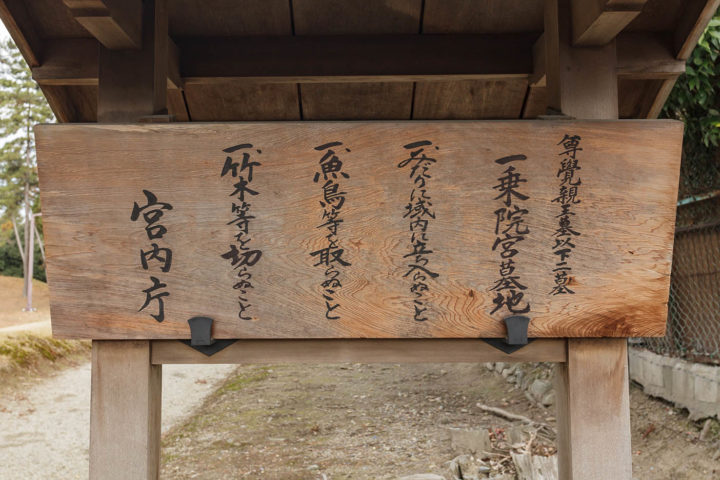 尊覺親王墓以下二墓
一乗院宮墓地
一、みだりに域内に立入らぬこと
一、魚鳥等を取らぬこと
一、竹木等を切らぬこと
宮内庁